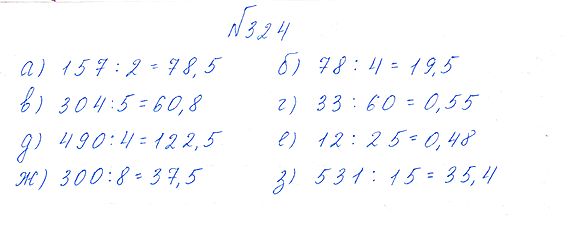 №324
а) 157 : 2 = 78,5 б) 78 : 4 = 19,5
в) 304 : 5 = 60,8 г) 33 : 60 = 0,55
д) 490 : 4 = 122,5 е) 12 : 25 = 0,48
ж) 300 : 8 = 37,5 з) 531 : 15 = 35,4